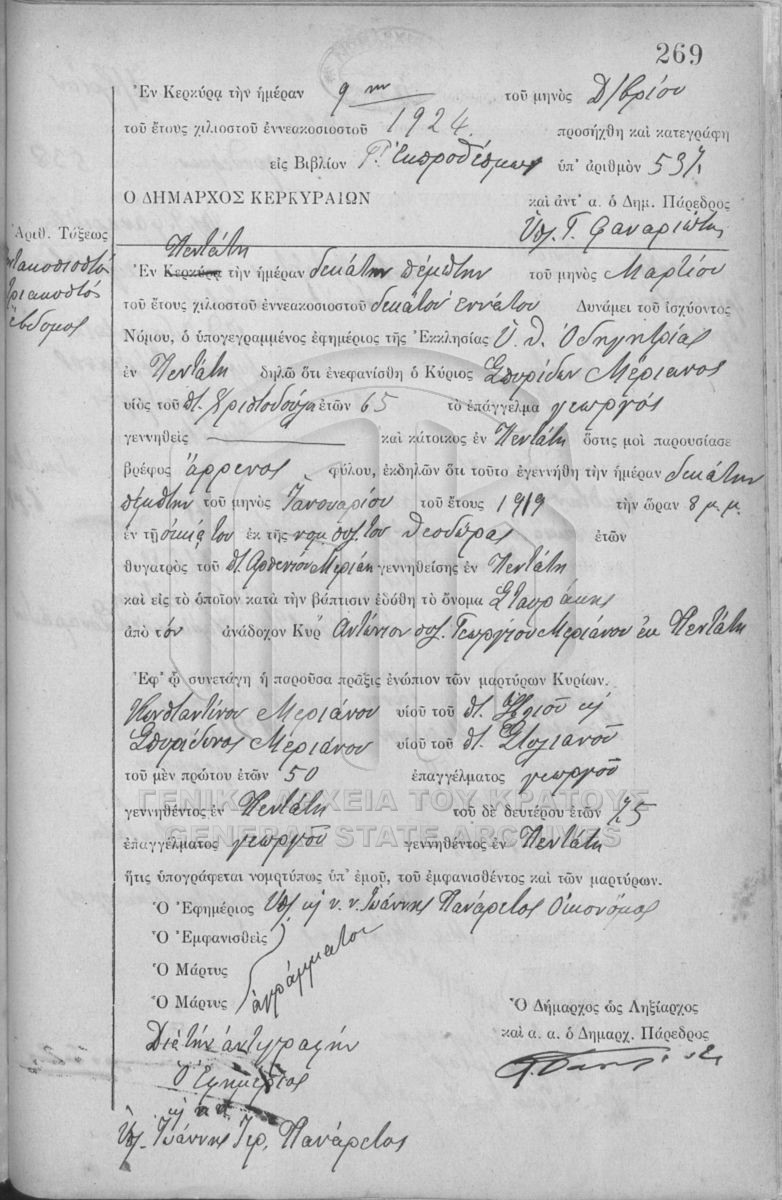 269
Ἐν Κερκύρᾳ τὴν ἡμέραν 9ην τοῦ μηνὸς Δ/βρίου
τοῦ ἔτους χιλιοστοῦ ἐννεακοσιοστοῦ 1924 προσήχθη καὶ κατεγράφη
εἰς Βιβλίον Γ. Ἐκπροθέσμων ὑπ' ἀριθμὸν 537
Ο ΔΗΜΑΡΧΟΣ ΚΕΡΚΥΡΑΙΩΝ καὶ ἀντ' α. ὁ Δημ. Πάρεδρος
Ὑπ. Γ. Φαναριώτης
Ἀριθ. Τάξεως
πεντακοσιοστός
τριακοστός
ἕβδομος
Πεντάτῃ
Ἐν Κερκύρᾳ τὴν ἡμέραν δεκάτην πέμπτην τοῦ μηνὸς Μαρτίου
τοῦ ἔτους χιλιοστοῦ ἐννεακοσιοστοῦ δεκάτου ἐννάτου Δυνάμει τοῦ ἰσχύοντος
Νόμου, ὁ ὑπογεγραμμένος ἐφημέριος τῆς Ἐκκλησίας Ὑ. Θ. Ὁδηγητρίας
ἐν Πεντάτῃ δηλῶ ὅτι ἐνεφανίσθη ὁ Κύριος Σπυρίδων Μεριανος
υἱὸς τοῦ π. Χριστοδούλου ἐτῶν 65 τὸ ἐπάγγελμα γεωργός
γεννηθεὶς καὶ κάτοικος ἐν Πεντάτῃ ὅστις μοὶ παρουσίασε
βρέφος ἄρρενος φύλου, ἐκδηλῶν ὅτι τοῦτο ἐγεννήθη τὴν ἡμέραν δεκάτην
πέμπτην τοῦ μηνὸς Ἰανουαρίου τοῦ ἔτους 1919 τὴν ὥραν 8 μ.μ.
ἐν τῇ οἰκίᾳ του ἐκ τῆς νομ. συζ. του Θεοδώρας ἐτῶν
θυγατρὸς τοῦ π. Ἀρσενίου Μεριάν γεννηθείσης ἐν Πεντάτῃ
καὶ εἰς τὸ ὁποῖον κατὰ τὴν βάπτισιν ἐδόθη τὸ ὄνομα Σταυράκης
ἀπὸ τόν ἀνάδοχον Κύρ Ἀντώνιον Γεωργίου Μεριάνου ἐκ Πεντάτη
Ἐφ' ᾧ συνετάγη ἡ παροῦσα πρᾶξις ἐνώπιον τῶν μαρτύρων Κυρίων.
Κωνσταντίνου Μεριάνου υἱοῦ τοῦ π. Ἠλιοῦ κ
Σπυρίδωνος Μεριάνου υἱοῦ τοῦ π. Στυλιανοῦ
τοῦ μὲν πρώτου ἐτῶν 50 ἐπαγγέλματος γεωργοῦ
γεννηθέντος ἐν Πεντάτῃ τοῦ δὲ δευτέρου ἐτῶν 75
ἐπαγγέλματος γεωργοῦ γεννηθέντος ἐν Πεντάτῃ
ἥτις ὑπογράφεται νομοτύπως ὑπ' ἐμοῦ, τοῦ ἐμφανισθέντος καὶ τῶν μαρτύρων.
Ὁ Ἐφημέριος Ἰωάννης Πανάρετος Οἰκονόμος
Ὁ Ἐμφανισθεὶς
Ὁ Μάρτυς
Ὁ Μάρτυς
ἀγράμματοι
Ὁ Δήμαρχος ὡς Ληξίαρχος
καὶ α. α. ὁ Δημαρχ. Πάρεδρος
Διὰ τὴν ἀντιγραφήν
Ὁ Ἐφημέριος
Ὑπ. Ἰωάννης Ἱερ. Πανάρετος
ΓΕΝΙΚΑ ΑΡΧΕΙΑ ΤΟΥ ΚΡΑΤΟΥΣ
GENERAL STATE ARCHIVES